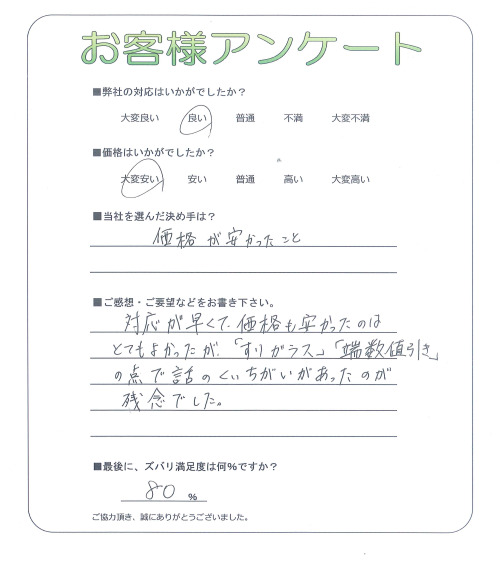 お客様アンケート
■弊社の対応はいかがでしたか？
大変良い 良い 普通 不満 大変不満
■価格はいかがでしたか？
大変安い 安い 普通 高い 大変高い
■当社を選んだ決め手は？
価格が安かったこと
■ご感想・ご要望などをお書き下さい。
対応が早くて、価格も安かったのは
とてもよかったが、「すりガラス」「端数値引き」
の点で話のくいちがいがあったのが
残念でした。
■最後に、ズバリ満足度は何％ですか？
80 ％
ご協力頂き、誠にありがとうございました。